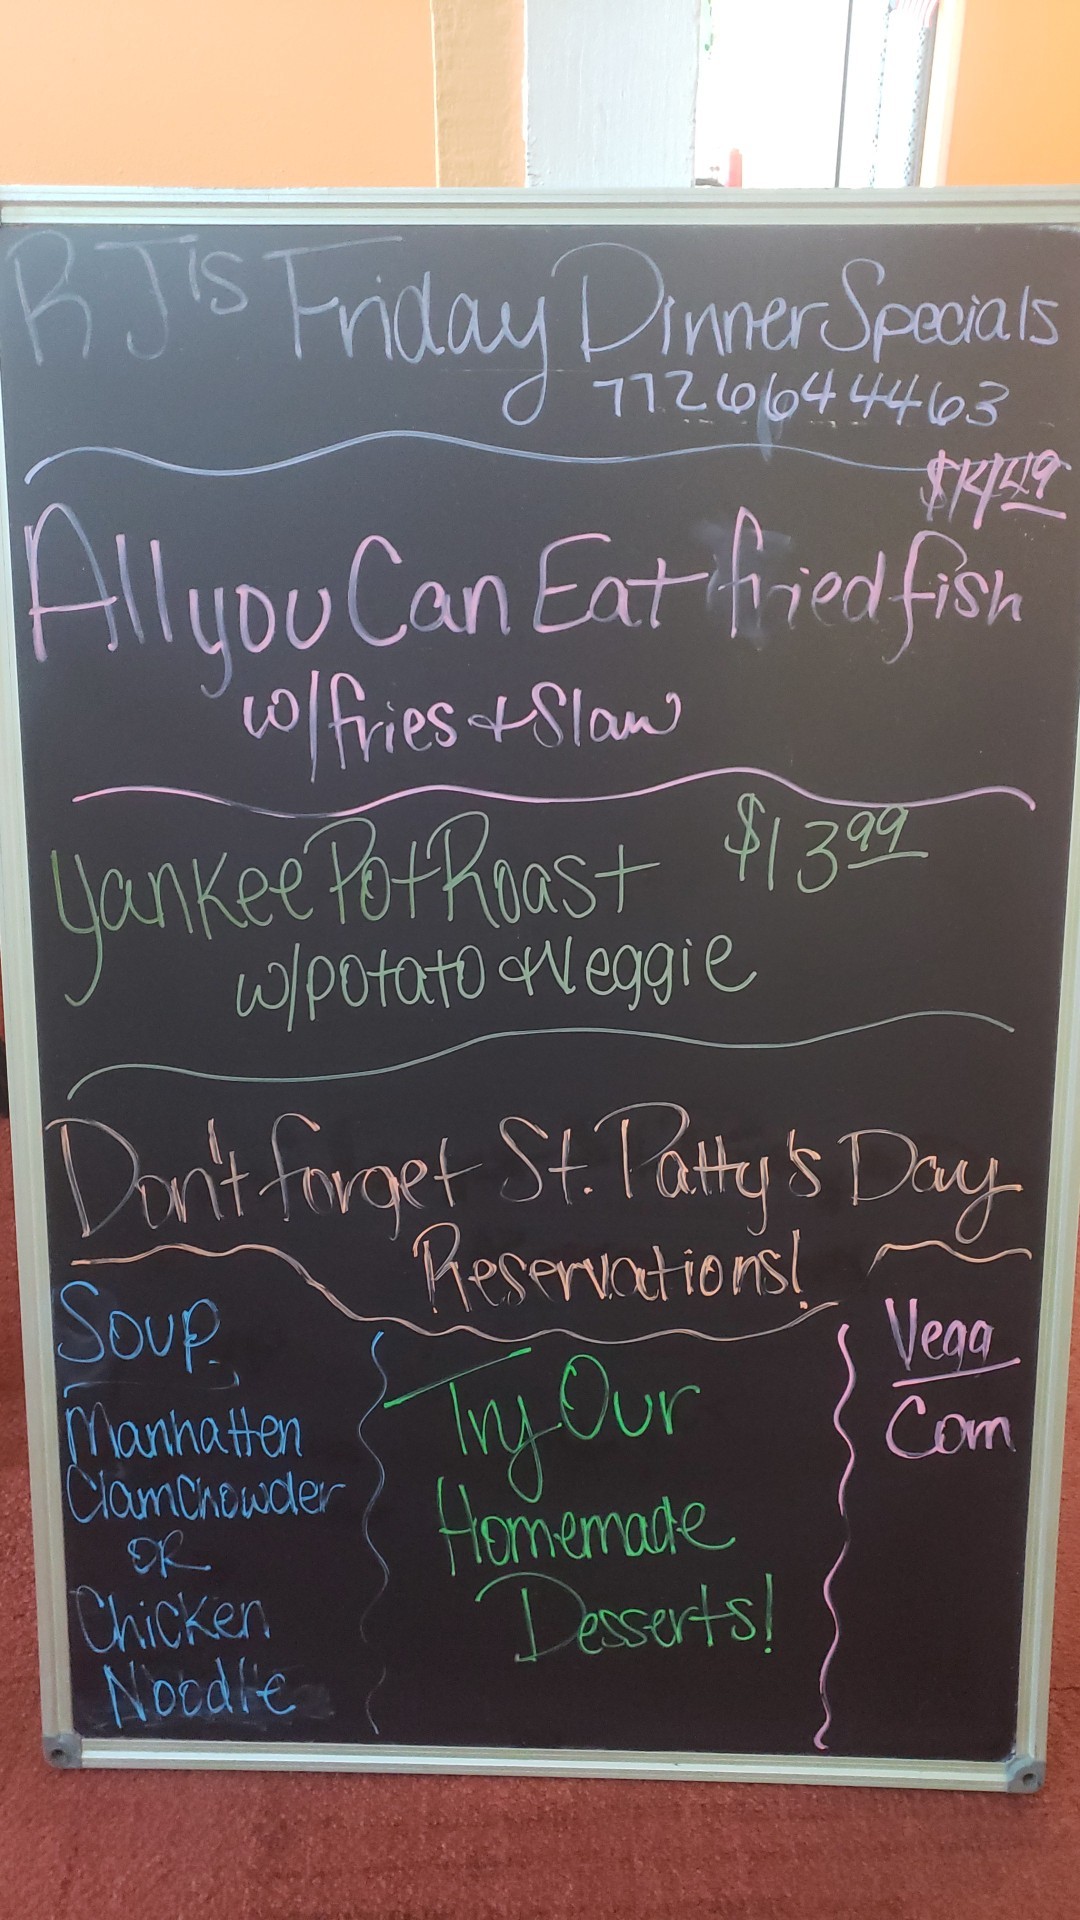 RJ's Friday Dinner Specials
7726644463
$14.49
All you Can Eat fried fish
w/fries & Slaw
Yankee Pot Roast $13.99
w/potato & Veggie
Don't forget St. Patty's Day
Reservations!
Soup
Manhatten
Clam Chowder
OR
Chicken
Noodle
Try Our
Homemade
Desserts!
Vegg
Corn